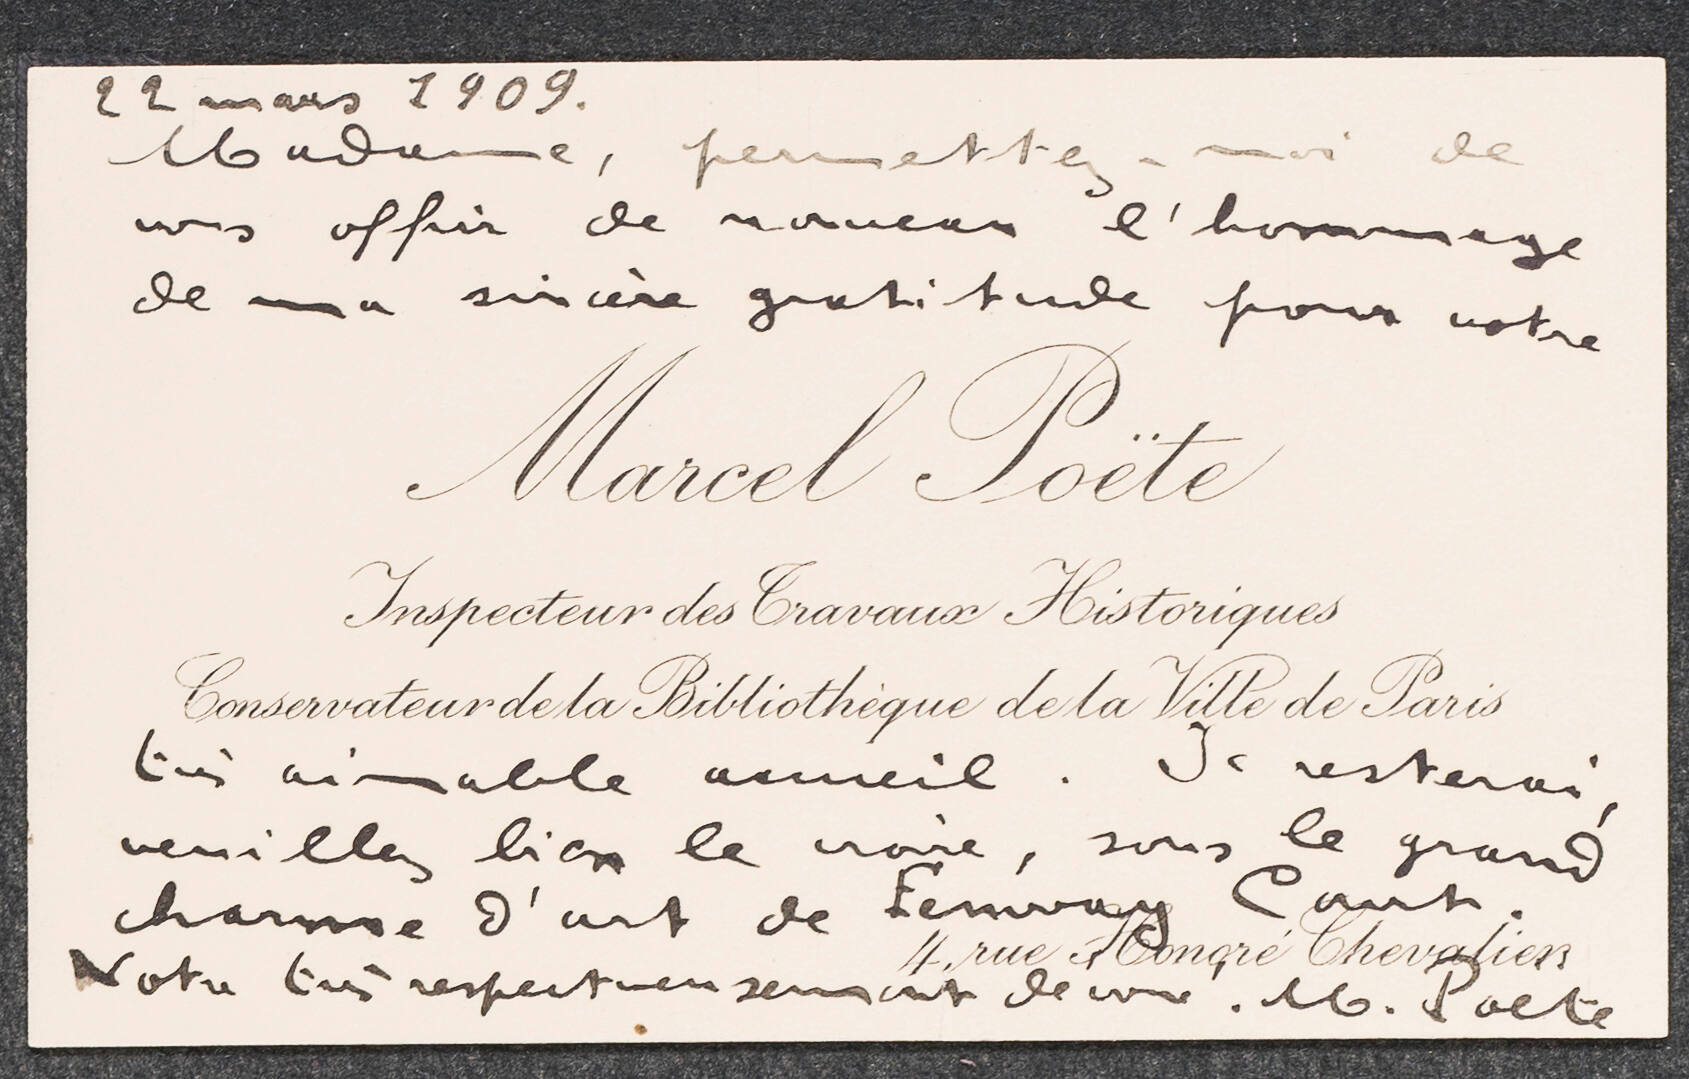 22 mars 1909.
Madame, permettez-moi de
vous offrir de nouveau l'hommage
de ma sincère gratitude pour votre
Marcel Poëte
Inspecteur des Travaux Historiques
Conservateur de la Bibliothèque de la Ville de Paris
très aimable accueil. Je resterai,
veuillez bien le croire, sous le grand
charme d'art de Fenway Court.
4, rue Honoré Chevalier
Votre très respectueusement dévoué. M. Poëte